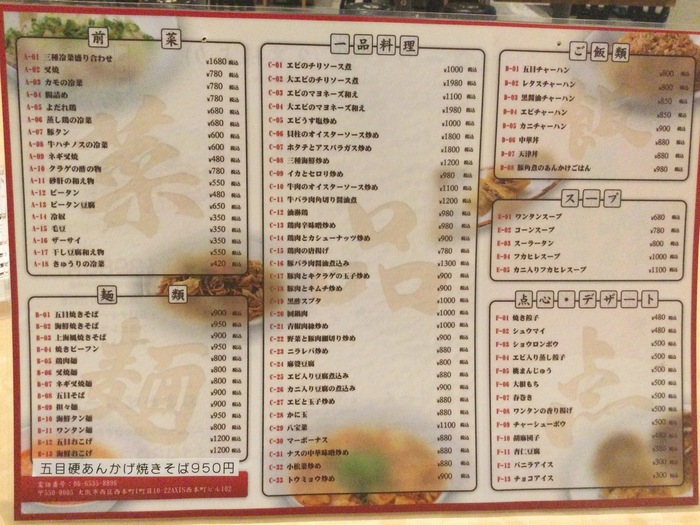 前菜
A-01 三種冷菜盛り合わせ ¥1680 税込
A-02 叉焼 ¥780 税込
A-03 カモの冷菜 ¥780 税込
A-04 腸詰め ¥780 税込
A-05 よだれ鶏 ¥680 税込
A-06 蒸し鶏の冷菜 ¥680 税込
A-07 豚タン ¥600 税込
A-08 牛ハチノスの冷菜 ¥600 税込
A-09 ネギ叉焼 ¥480 税込
A-10 クラゲの酢の物 ¥780 税込
A-11 砂肝の和え物 ¥550 税込
A-12 ピータン ¥480 税込
A-13 ピータン豆腐 ¥650 税込
A-14 冷奴 ¥350 税込
A-15 毛豆 ¥350 税込
A-16 ザーサイ ¥350 税込
A-17 干し豆腐和え物 ¥550 税込
A-18 きゅうりの冷菜 ¥420 税込
麺類
B-01 五目焼きそば ¥900 税込
B-02 海鮮焼きそば ¥950 税込
B-03 上海風焼きそば ¥900 税込
B-04 焼きビーフン ¥950 税込
B-05 鶏肉麺 ¥800 税込
B-06 叉焼麺 ¥800 税込
B-07 ネギ叉焼麺 ¥800 税込
B-08 五目そば ¥900 税込
B-09 担々麺 ¥900 税込
B-10 海鮮タン麺 ¥950 税込
B-11 ワンタン麺 ¥800 税込
B-12 五目おこげ ¥1200 税込
B-13 海鮮おこげ ¥1200 税込
五目硬あんかけ焼きそば950円
電話番号：06-6535-8896
〒550-0005 大阪市西区西本町1丁目10-22AXIS西本町ビル102
一品料理
C-01 エビのチリソース煮 ¥1000 税込
C-02 大エビのチリソース煮 ¥1980 税込
C-03 エビのマヨネーズ和え ¥1100 税込
C-04 大エビのマヨネーズ和え ¥1980 税込
C-05 エビうす塩炒め ¥1000 税込
C-06 貝柱のオイスターソース炒め ¥1100 税込
C-07 ホタテとアスパラガス炒め ¥1100 税込
C-08 三種海鮮炒め ¥1200 税込
C-09 イカとセロリ炒め ¥980 税込
C-10 牛肉のオイスターソース炒め ¥1100 税込
C-11 牛バラ肉角切り醤油煮 ¥1200 税込
C-12 油淋鶏 ¥980 税込
C-13 鶏肉辛味噌炒め ¥980 税込
C-14 鶏肉とカシューナッツ炒め ¥980 税込
C-15 鶏肉の唐揚げ ¥780 税込
C-16 豚バラ肉醤油煮込み ¥1300 税込
C-17 豚肉とキクラゲの玉子炒め ¥900 税込
C-18 豚肉とキムチ炒め ¥900 税込
C-19 黒酢スブタ ¥1000 税込
C-20 回鍋肉 ¥1000 税込
C-21 青椒肉絲炒め ¥1000 税込
C-22 野菜と豚肉細切り炒め ¥900 税込
C-23 ニラレバ炒め ¥880 税込
C-24 麻婆豆腐 ¥880 税込
C-25 エビ入り豆腐煮込み ¥880 税込
C-26 カニ入り豆腐の煮込み ¥900 税込
C-27 エビと玉子炒め ¥980 税込
C-28 かに玉 ¥880 税込
C-29 八宝菜 ¥1100 税込
C-30 マーボーナス ¥880 税込
C-31 ナスの中華味噌炒め ¥880 税込
C-32 小松菜炒め ¥880 税込
C-33 トウミョウ炒め ¥980 税込
ご飯類
D-01 五目チャーハン ¥800 税込
D-02 レタスチャーハン ¥800 税込
D-03 黒醤油チャーハン ¥850 税込
D-04 エビチャーハン ¥850 税込
D-05 カニチャーハン ¥900 税込
D-06 中華丼 ¥880 税込
D-07 天津丼 ¥880 税込
D-08 豚角煮のあんかけごはん ¥980 税込
スープ
E-01 ワンタンスープ ¥680 税込
E-02 コーンスープ ¥780 税込
E-03 スーラータン ¥800 税込
E-04 フカヒレスープ ¥1000 税込
E-05 カニ入りフカヒレスープ ¥1100 税込
点心・デザート
F-01 焼き餃子 ¥480 税込
F-02 シュウマイ ¥480 税込
F-03 ショウロンポウ ¥500 税込
F-04 エビ入り蒸し餃子 ¥500 税込
F-05 桃まんじゅう ¥500 税込
F-06 大根もち ¥500 税込
F-07 春巻き ¥500 税込
F-08 ワンタンの香り揚げ ¥500 税込
F-09 チャーシューポウ ¥500 税込
F-10 胡麻団子 ¥480 税込
F-11 杏仁豆腐 ¥350 税込
F-12 バニラアイス ¥300 税込
F-13 チョコアイス ¥300 税込